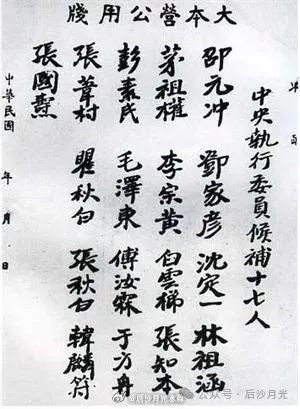 大本營公用牋
中央執行委員候補十七人
邵元冲 鄧家彥 沈定一 林祖涵
茅祖權 李宗黃 白雲梯 張知本
彭素民 毛澤東 傅汝霖 于方舟
張葦村 瞿秋白 張秋白 韓麟符
張國燾
中華民國 年 月 日
公众号 · 后沙月光
@后沙月光本尊